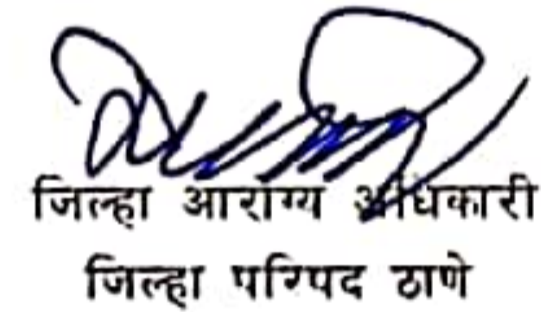 जिल्हा आरोग्य अधिकारी
जिल्हा परिषद ठाणे